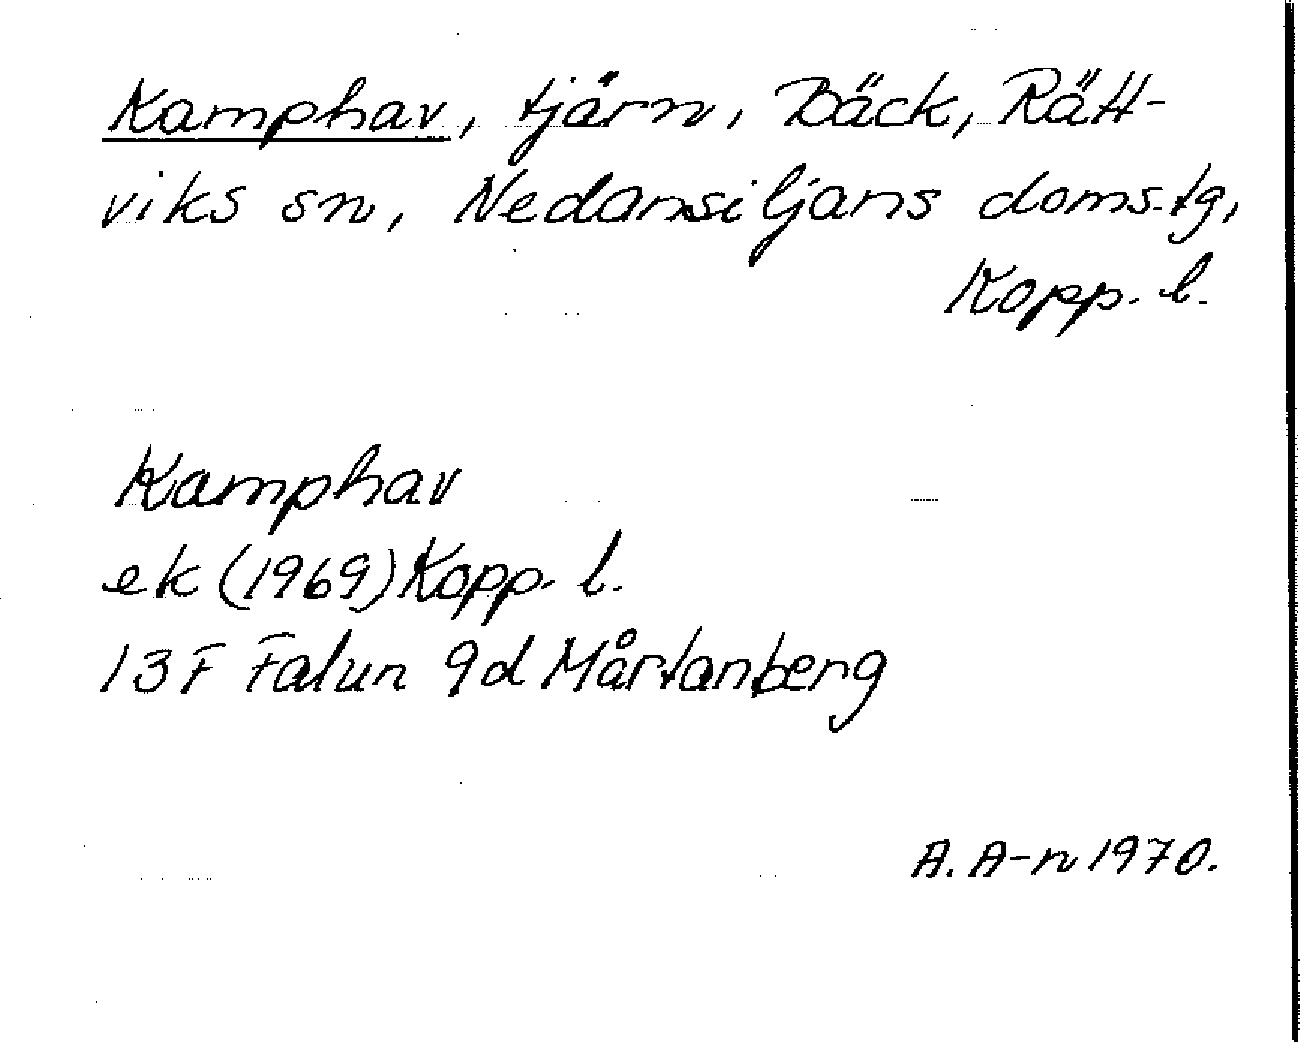 Kamphav, tjärn, Bäck, Rätt-
viks sn, Nedansiljans doms.tg,
Kopp. l.
Kamphav
ek (1969) Kopp. l.
13F Falun 9d Mårtanberg
A. A-n 1970.